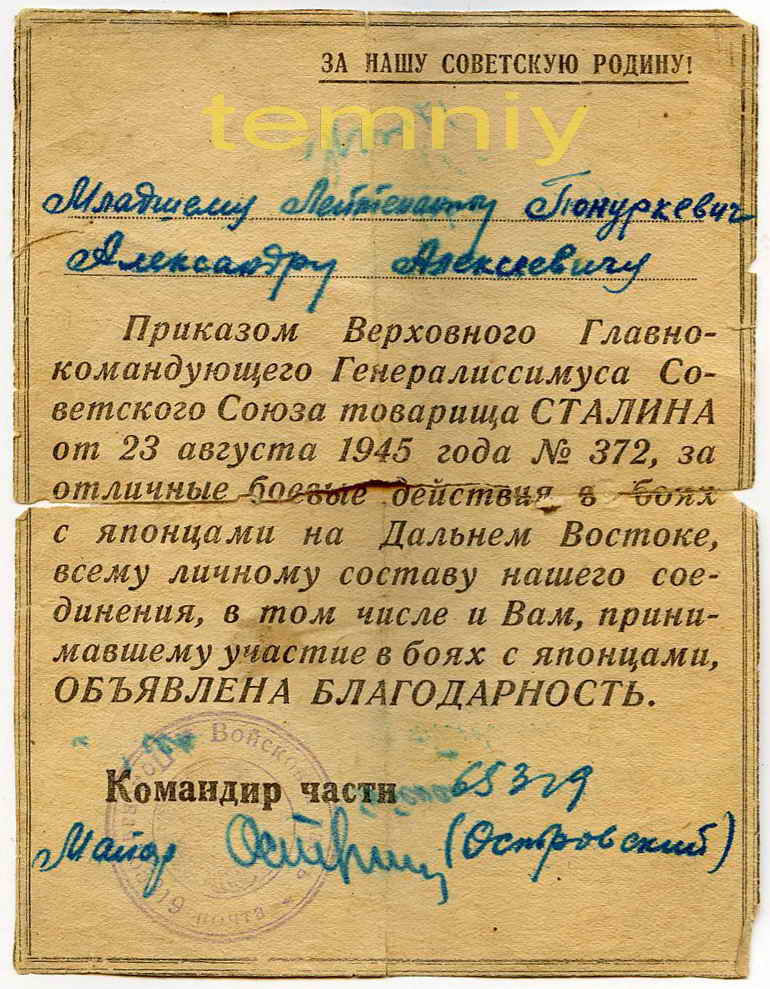 ЗА НАШУ СОВЕТСКУЮ РОДИНУ!
temniy
Младшему Лейтенанту Понуркевич
Александру Алексеевичу
Приказом Верховного Главно-
командующего Генералиссимуса Со-
ветского Союза товарища СТАЛИНА
от 23 августа 1945 года № 372, за
отличные боевые действия в боях
с японцами на Дальнем Востоке,
всему личному составу нашего сое-
динения, в том числе и Вам, прини-
мавшему участие в боях с японцами,
ОБЪЯВЛЕНА БЛАГОДАРНОСТЬ.
Войсков
Командир части 65329
Майор (Островский)
почта